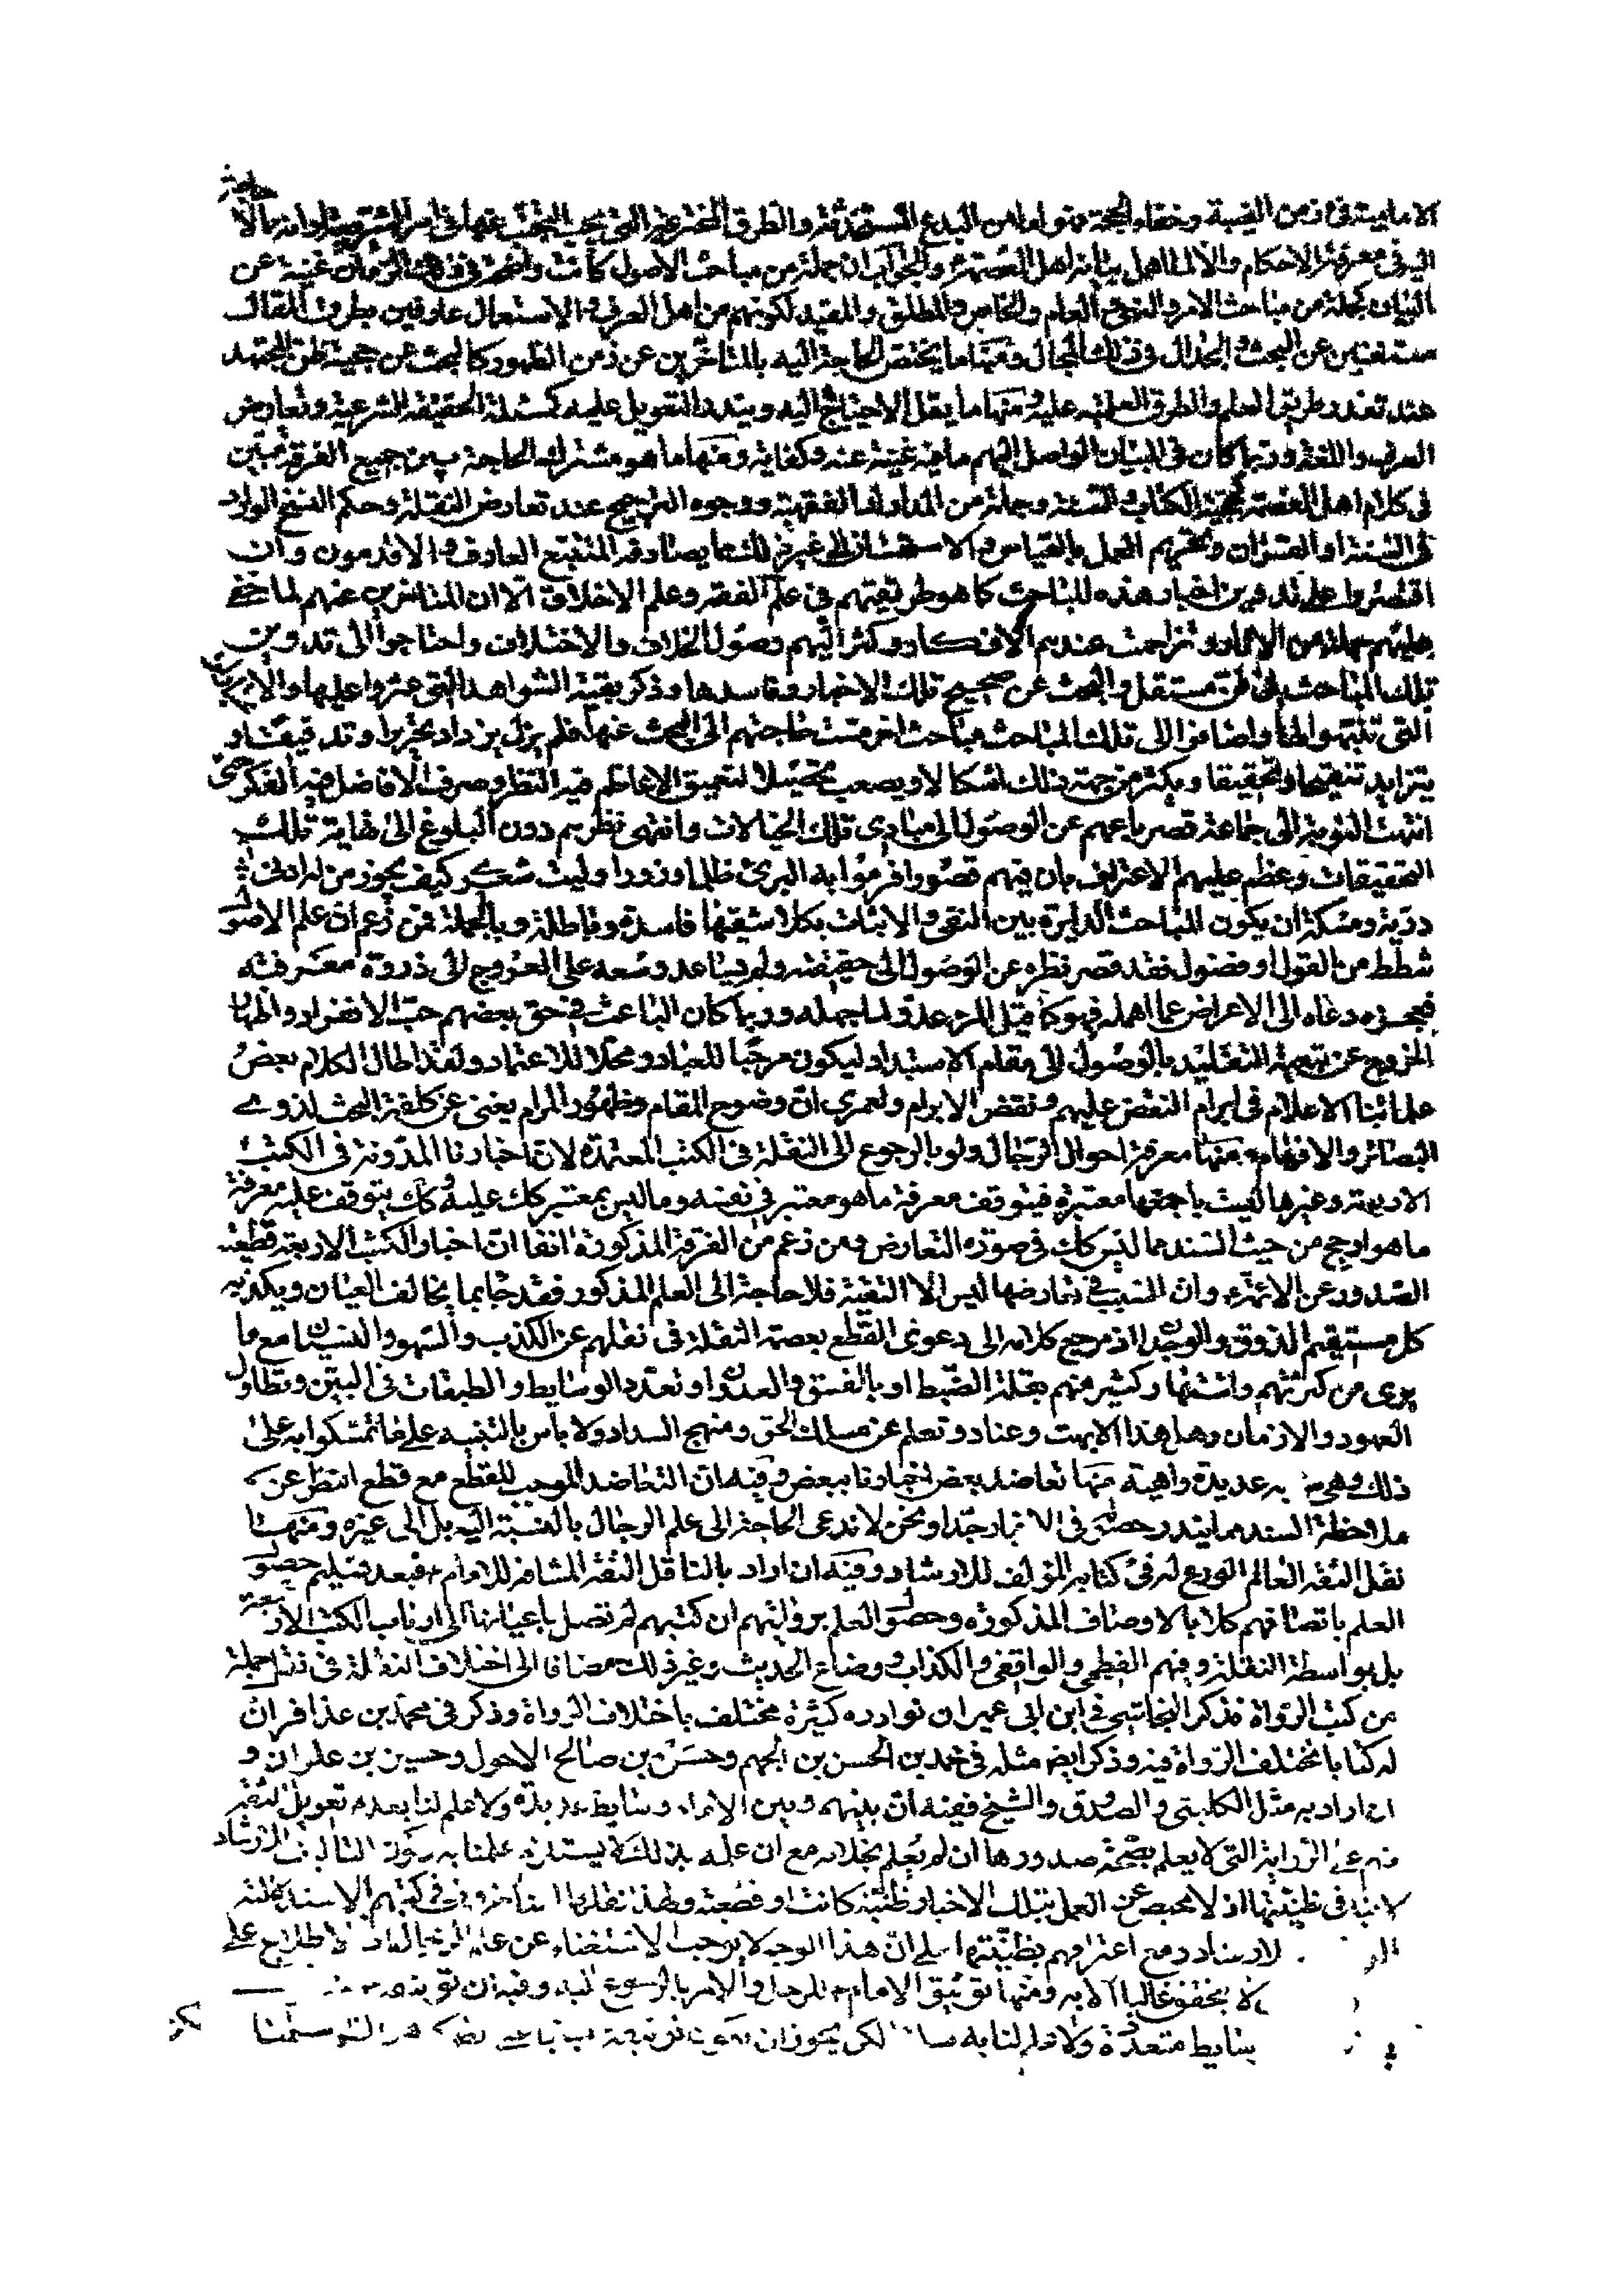 الامامية فى زمن الغيبة وخفاء الحجة من البدع المستحدثة والطرق المخترعة التى يجب التجنب عنها فى
فى معرفة الاحكام والا لما اهمل بيانه اهل العصمة ع والجواب ان جملة من مباحث الاصول كانت واضحة فى الزمان غنية عن
البيان كجملة من مباحث الامر والنهى والعام والخاص والمطلق والمقيد لكونهم من اهل العرف والاستعمال عارفين بطرق المقال
مستغنين عن البحث والجدال فى ذلك المجال ومنها ما يختص الحاجة اليه بالمتاخرين عن زمن الظهور كالبحث عن حجية ظن المجتهد
عند تعذر طريق العلم والطرق العلمية عليه ومنها ما يقل الاحتياج اليه ويندر التعويل عليه كمسئلة الحقيقة الشرعية وتعارض
العرف واللغة وربما كان فى البيان الواصل اليهم ما فيه غنية عنه وكفاية ومنها ما هو مشترك الحاجة بين جميع الفرق مبين
فى كلام اهل العصمة كحجية الكتاب والسنة وجملة من المداولات الفقهية ووجوه الترجيح عند تعارض النقلة وحكم النسخ الوارد
فى السنة او القران وتحريم العمل بالقياس والاستحسان الى غير ذلك مما يصادفه المتتبع العارف والاقدمون وان
اقتصروا على تدوين اخبار هذه المباحث كما هو طريقتهم فى علم الفقه وعلم الاخلاق الا ان المتاخرين عنهم لما خفى
عليهم جملة من الامارات وتزاحمت عندهم الافكار وكثر اليهم وصول الخلاف والاختلاف واحتاجوا الى تدوين
تلك المباحث فى فن مستقل والبحث عن صحيح تلك الاخبار وفاسدها وذكر بقية الشواهد التى عثروا عليها
التى تنبهوا لها واضافوا الى تلك المباحث مباحث اخر مست حاجتهم الى البحث عنها فلم يزل يزداد تحريرا وتدقيقا و
يتزايد تنقيحا وتحقيقا ويكثر من جهة ذلك اشكالا ويصعب تحصيلا لتعميق الاعاظم فيه النظر وصرف الافاضل فيه الفكر حتى
انتهت النوبة الى جماعة قصر باعهم عن الوصول الى مبادى تلك الخيالات وانتهى نظرهم دون البلوغ الى نهاية تلك
التحقيقات وعظم عليهم الاعتراف بان فيهم قصورا فرموا به البرى ظلما وزورا وليت شعرى كيف يجوز من له ادنى
دربة ومسكة ان يكون المباحث الدايرة بين النفى والاثبات بكلا شقيها فاسدة وباطلة وبالجملة فمن زعم ان علم الاصول
شطط من القول او فضول فقد قصر نظره عن الوصول الى حقيقته ولم يساعد وسعه على العروج الى ذروة معرفته
فعجزه دعاه الى الاعراض عما اهمله فهو كما قيل المرء عدو لما جهله وربما كان الباعث فى حق بعضهم حب الانفراد واظهار
الخروج عن تهمة التقليد بالوصول الى مقام الاستبداد ليكون مرجعا للعباد ومحلا للاعتماد ولقد اطال الكلام بعض
علمائنا الاعلام فى ابرام النقض عليهم ونقض الابرام ولعمرى ان وضوح المقام وظهور المرام يغنى عن كلفة البحث لذوى
البصائر والافهام ومنها معرفة احوال الرجال ولو بالرجوع الى النقلة فى الكتب المعتمدة لان اخبارنا المدونة فى الكتب
الاربعة وغيرها ليست باجمعها معتبرة فيتوقف معرفة ما هو معتبر فى نفسه وما ليس بمعتبر كك عليه وكك يتوقف عليه معرفة
ما هو ارجح من حيث السند مما ليس كك فى صورة التعارض ومن زعم من الفرقة المذكورة انفا ان اخبار الكتب الاربعة قطعية
الصدور عن الائمة ع وان السبب فى تعارضها ليس الا التقية فلا حاجة الى العلم المذكور فقد جاء بما يخالف العيان ويكذبه
كل مستقيم الذوق والوجدان اذ مرجع كلامه الى دعوى القطع بعصمة النقلة فى نقلهم عن الكذب والسهو والنسيان مع ما
يرى من كثرتهم واشتهار كثير منهم بقلة الضبط او بالفسق والعدوان وتعدد الوسايط والطبقات فى البين وتطاول
العهود والازمان وهل هذا الا بهت وعناد وتعام عن مسلك الحق ومنهج السداد ولا باس بالتنبيه على ما تمسكوا به على
ذلك وهى عديدة واهية منها تعاضد بعض اخبارنا ببعض وفيه ان التعاضد الموجب للقطع مع قطع النظر عن
ملاحظة السند مما يندر حصوله فى الاخبار جدا ونحن لا ندعى الحاجة الى علم الرجال بالنسبة اليه بل الى غيره ومنها
نقل الثقة العالم الورع له فى كتابه المؤلف للارشاد وفيه ان اراد بالناقل الثقة المشافه للامام ع فبعد تسليم حصول
العلم باتصافهم كلا بالاوصاف المذكورة وحصول العلم بروايتهم ان كتبهم لم تصل باعيانها الى ارباب الكتب الاربعة
بل بواسطة النقلة وفيهم الفطحى والواقفى والكذاب ووضاع الحديث وغير ذلك مضافا الى اختلاف النقلة فى نقل جملة
من كتب الرواة فذكر النجاشى فى ابن ابى عمير ان نوادره كثيرة مختلف باختلاف الرواة وذكر فى محمد بن عذافر ان
له كتابا تختلف الرواة فيه وذكر ايض مثله فى محمد بن الحسن بن الجهم وحسن بن صالح الاحول وحسين بن علوان و
ان اراد به مثل الكلينى والصدوق والشيخ ففيه ان بينهم وبين الائمة وسايط عديدة ولا علم لنا بعدم تعويل الثقة
منهم على الرواية التى لا يعلم بصحة صدورها ان لم يعلم بخلافه مع ان علمه بذلك لا يستلزم علمنا به
ظنيتها اذ لا محيص عن العمل بتلك الاخبار ظنية كانت او قطعية ولهذا فى كتبهم
مع اعترافهم بظنيتها على ان هذا الوجه لا يوجب الاستغناء عن علم الرجال الاطلاع على
غالبا الا به ومنها توثيق الامام ع للرجال والامر بالرجوع اليه وفيه ان
وسايط متعددة ولا علم لنا به لكن يجوز ان